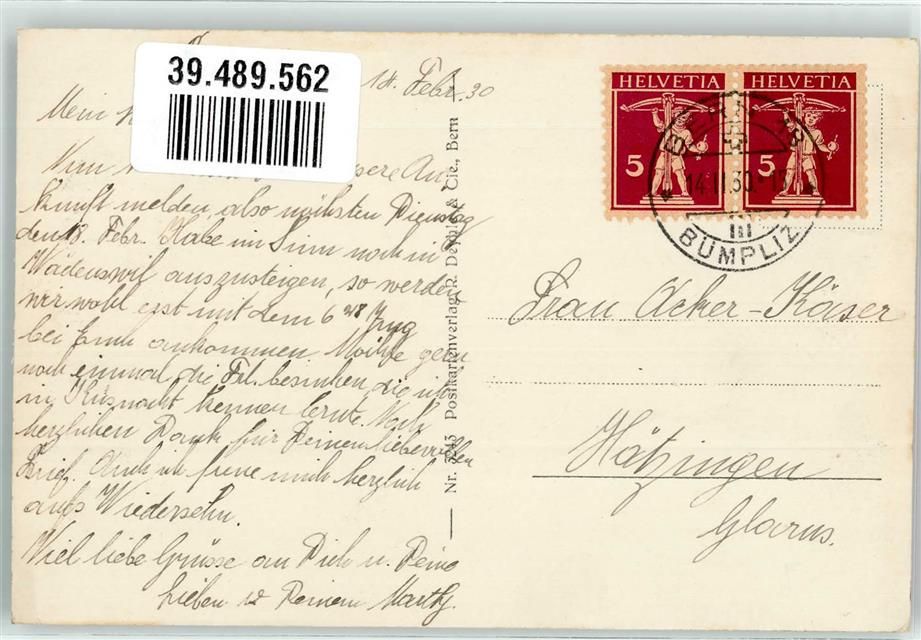 39.489.562
14. Febr. 30
Mein
Nun unsere An-
kunft melden, also nächsten Dienstag
den 18. Febr. Habe im Sinn noch in
Wädenswil auszusteigen, so werden
wir wohl erst mit dem 6 48 Zug
bei Euch ankommen. Möchte gern
noch einmal die Frl. besuchen die ich
in Küsnacht kennen lernte. Noch
herzlichen Dank für Deinen liebevollen
Brief. Auch ich freue mich herzlich
aufs Wiedersehn.
Viel liebe Grüsse an Dich u. Deine
Lieben v. Deinem
Nr. 3243 Postkartenverlag R. & Cie., Bern
HELVETIA
5
HELVETIA
5
BERN 18
14.II.30.-15
III
BÜMPLIZ
Frau Acker-Käser
Hätzingen
Glarus.